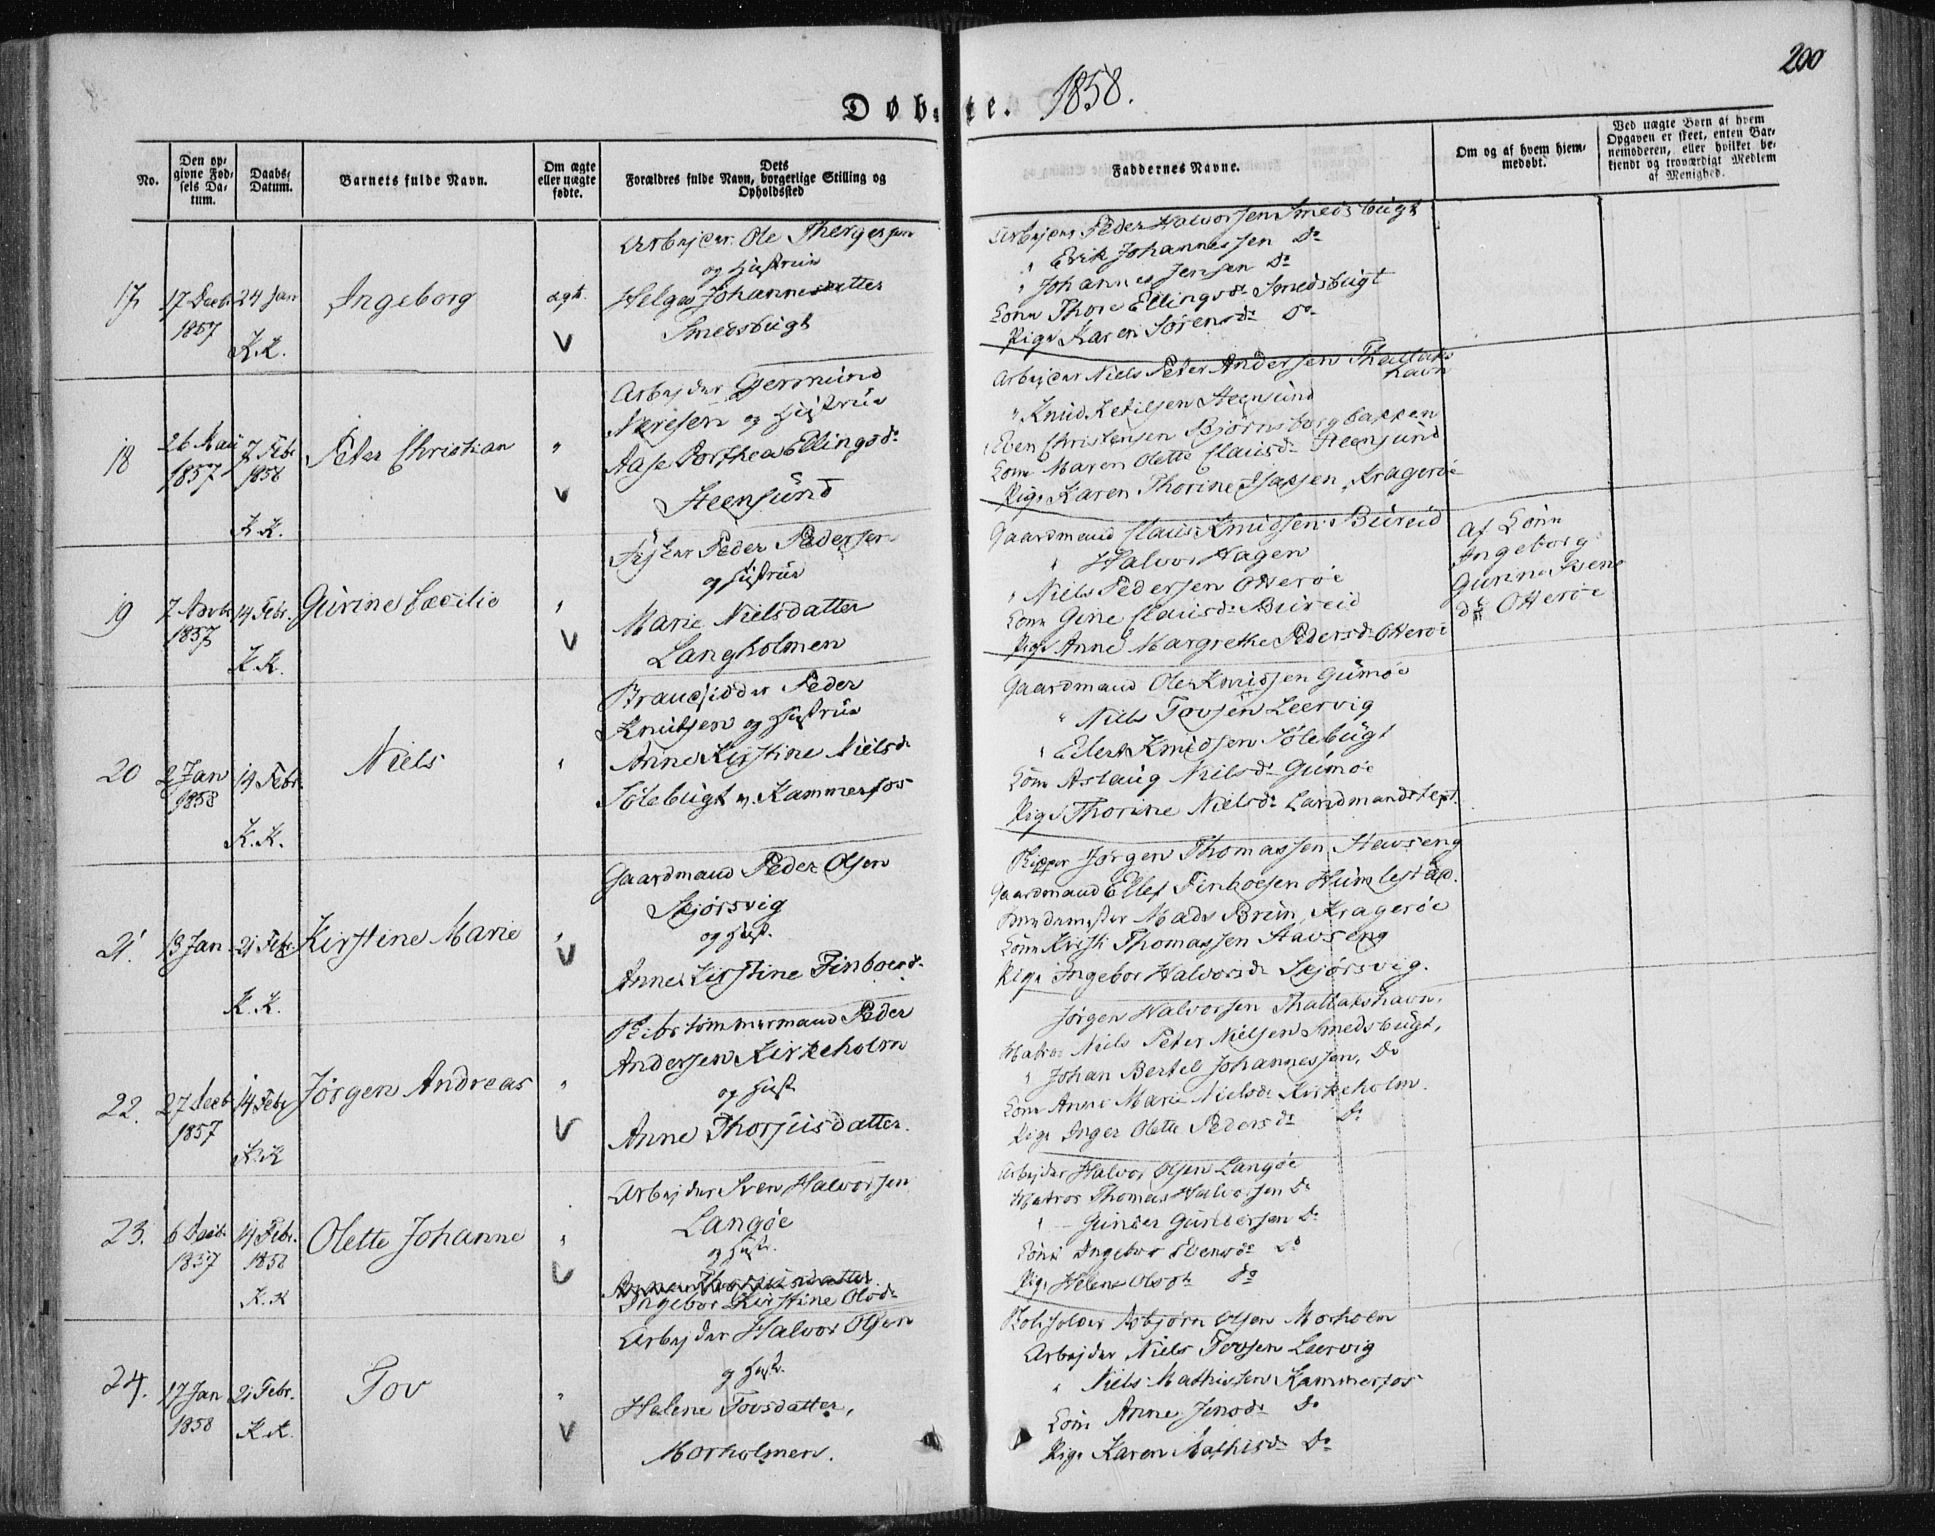 200
Døbte. 1858.
No.
Den opgivne Fødsels Datum.
Daabs-Datum.
Barnets fulde Navn.
Om ægte eller uægte fødte.
Dets Forældres fulde Navn, borgerlige Stilling og Opholdssted
Faddernes Navne.
Om og af hvem hjemmedøbt.
Ved uægte Børn af hvem Opgaven er skeet, enten Barnemoderen, eller hvilket bekjendt og troværdigt Medlem af Menighed.
17
17 Decb. 1857
24 Jan
K.K.
Ingeborg
ægt.
V
Arbejder Ole Thergesen
og Hustrue
Helge Johannesdatter
Smedsbugt
Arbejder Peder Halvorsen Smedsbugt
" Erik Johannessen Do
" Johannes Jensen Do
Kone Thore Ellingsd. Smedsbugt
Pige Karen Sørensd. Do
18
26 1857
7 Febr 1858
K.K.
Peter Christian
"
V
Arbejder Gjermund
og Hustrue
Aase Dorthea Ellingsd.
Steensund
Arbejder Niels Peter Andersen Thallaks
havn
" Knud Ketilsen Steensund
Even Christensen
Kone Maren Olette Clausd. Steensund
Pige Karen Thorine Isaksen, Kragerøe
19
7 1857
14 Febr.
K.K.
Gurine Cecilie
"
V
Fisker Peder Pedersen
og Hustrue
Marie Nielsdatter
Langholmen
Gaardmand Claus Knudsen Bureid
" Halvor Hagen
" Niels Pedersen Otterøe
Kone Gine Clausd. Bureid
Pige Anne Margrethe Pedersd. Otterøe
af Kone
Ingeborg
Gurine
Otterøe
20
2 Jan 1858
14 Febr.
K.K.
Niels
"
Peder
Knutsen og Hustrue
Anne Kirstine Nielsd.
Sølebugt v. Kammerfos
Gaardmand Ole Knudsen Gumøe
" Niels Tovsen Leervig
" Eilert Knudsen Sølebugt
Kone Aslaug Nielsd. Gumøe
Pige Thorine Nielsd.
21.
13 Jan
21 Febr
K.K.
Kirstine Marie
"
V
Gaardmand Peder Olsen
Skjørsvig
og Hust.
Anne Kirstine Finboesd.
Skipper Jørgen Thomassen Stavseng
Gaardmand Ellef Finboesen
Mads Brun, Kragerøe
Kone Thomassen Stavseng
Pige Ingebor Halvorsd. Skjørsvig.
22.
27 Decb 1857
14 Febr
K.K
Jørgen Andreas
"
V
Peder
Andersen Kirkeholm
og Hust
Anne Thorjusdatter.
Jørgen Halvorsen Thallakshavn.
Matros Niels Peter Nielsen Smedsbugt,
" Johan Bertel Johannessen, Do
Kone Anne Marie Nielsd. Kirkeholm.
Pige Inger Olette Pedersd. Do
23.
6 Decb. 1857
14 Febr. 1858
K.K
Olette Johanne
"
V
Arbejder Sven Halvorsen
Langøe
og Hust.
Anne Thorjusdatter
Ingebor Kirstine Olsd.
Arbejder Halvor Olsen Langøe
Matros Thomas Halvorsen Do
" Gunder Gundersen Do
Kone Ingebor Do
Pige Helene Olsd. Do
24.
17 Jan 1858
21 Febr.
K.K.
Tov
"
V
Arbejder Halvor Olsen
og Hust.
Helene Tovsdatter,
Morholmen.
Asbjørn Olsen Morholm
Arbejder Niels Tovsen Leervig
" Niels Mathissen Kammerfos
Kone Anne Jensd. Do
Pige Karen Mathisd. Do